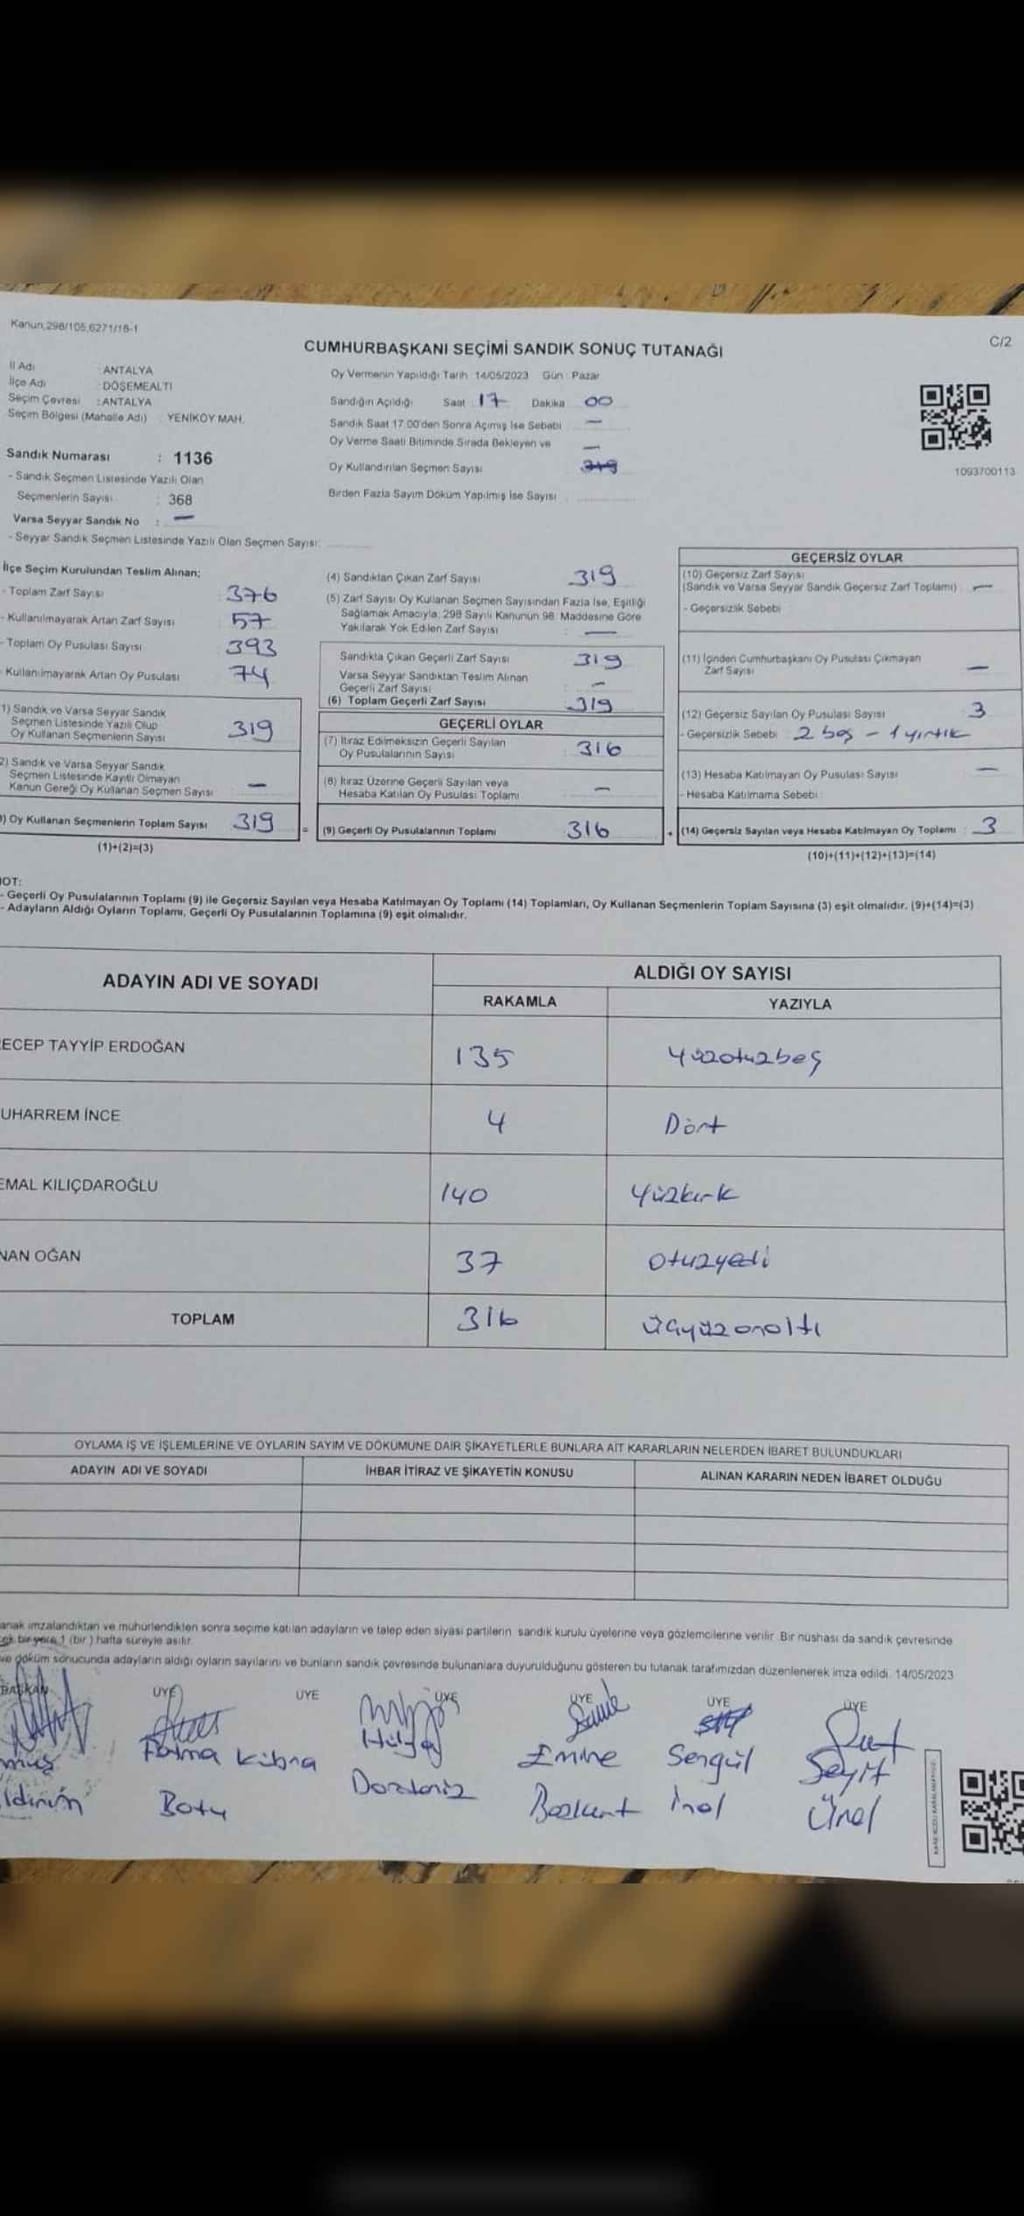 Kanun:298/105,6271/18-1
C/2
CUMHURBAŞKANI SEÇİMİ SANDIK SONUÇ TUTANAĞI
İl Adı : ANTALYA
İlçe Adı : DÖŞEMEALTI
Seçim Çevresi : ANTALYA
Seçim Bölgesi (Mahalle Adı) : YENİKÖY MAH.
Sandık Numarası : 1136
- Sandık Seçmen Listesinde Yazılı Olan
Seçmenlerin Sayısı : 368
Varsa Seyyar Sandık No : —
- Seyyar Sandık Seçmen Listesinde Yazılı Olan Seçmen Sayısı:
Oy Vermenin Yapıldığı Tarih : 14/05/2023 Gün : Pazar
Sandığın Açıldığı Saat 17 Dakika 00
Sandık Saat 17.00'den Sonra Açımış İse Sebebi —
Oy Verme Saati Bitiminde Sırada Bekleyen ve —
Oy Kullandırılan Seçmen Sayısı
Birden Fazla Sayım Döküm Yapılmış İse Sayısı
1093700113
İlçe Seçim Kurulundan Teslim Alınan;
- Toplam Zarf Sayısı 376
- Kullanılmayarak Artan Zarf Sayısı 57
- Toplam Oy Pusulası Sayısı 393
- Kullanılmayarak Artan Oy Pusulası 74
1) Sandık ve Varsa Seyyar Sandık
Seçmen Listesinde Yazılı Olup
Oy Kullanan Seçmenlerin Sayısı 319
2) Sandık ve Varsa Seyyar Sandık
Seçmen Listesinde Kayıtlı Olmayan
Kanun Gereği Oy Kullanan Seçmen Sayısı —
) Oy Kullanan Seçmenlerin Toplam Sayısı 319 =
(1)+(2)=(3)
(4) Sandıktan Çıkan Zarf Sayısı 319
(5) Zarf Sayısı Oy Kullanan Seçmen Sayısından Fazla İse, Eşitliği
Sağlamak Amacıyla, 298 Sayılı Kanunun 98. Maddesine Göre
Yakılarak Yok Edilen Zarf Sayısı —
Sandıkta Çıkan Geçerli Zarf Sayısı 319
Varsa Seyyar Sandıktan Teslim Alınan
Geçerli Zarf Sayısı —
(6) Toplam Geçerli Zarf Sayısı 319
GEÇERLİ OYLAR
(7) İtiraz Edilmeksizin Geçerli Sayılan
Oy Pusulalarının Sayısı 316
(8) İtiraz Üzerine Geçerli Sayılan veya
Hesaba Katılan Oy Pusulası Toplamı —
(9) Geçerli Oy Pusulalarının Toplamı 316 +
GEÇERSİZ OYLAR
(10) Geçersiz Zarf Sayısı
(Sandık ve Varsa Seyyar Sandık Geçersiz Zarf Toplamı) —
- Geçersizlik Sebebi
(11) İçinden Cumhurbaşkanı Oy Pusulası Çıkmayan
Zarf Sayısı —
(12) Geçersiz Sayılan Oy Pusulası Sayısı 3
- Geçersizlik Sebebi : 2 boş - 1 yırtık
(13) Hesaba Katılmayan Oy Pusulası Sayısı —
- Hesaba Katılmama Sebebi :
(14) Geçersiz Sayılan veya Hesaba Katılmayan Oy Toplamı : 3
(10)+(11)+(12)+(13)=(14)
NOT:
- Geçerli Oy Pusulalarının Toplamı (9) ile Geçersiz Sayılan veya Hesaba Katılmayan Oy Toplamı (14) Toplamları, Oy Kullanan Seçmenlerin Toplam Sayısına (3) eşit olmalıdır. (9)+(14)=(3)
- Adayların Aldığı Oyların Toplamı, Geçerli Oy Pusulalarının Toplamına (9) eşit olmalıdır.
ADAYIN ADI VE SOYADI ALDIĞI OY SAYISI
RAKAMLA YAZIYLA
ECEP TAYYİP ERDOĞAN 135 Yüzotuzbeş
UHARREM İNCE 4 Dört
EMAL KILIÇDAROĞLU 140 Yüzkırk
NAN OĞAN 37 Otuzyedi
TOPLAM 316 Üçyüzonaltı
OYLAMA İŞ VE İŞLEMLERİNE VE OYLARIN SAYIM VE DÖKÜMÜNE DAİR ŞİKAYETLERLE BUNLARA AİT KARARLARIN NELERDEN İBARET BULUNDUKLARI
ADAYIN ADI VE SOYADI İHBAR İTİRAZ VE ŞİKAYETİN KONUSU ALINAN KARARIN NEDEN İBARET OLDUĞU
anak imzalandıktan ve mühürlendikten sonra seçime katılan adayların ve talep eden siyasi partilerin sandık kurulu üyelerine veya gözlemcilerine verilir. Bir nüshası da sandık çevresinde
bir yere 1 (bir) hafta süreyle asılır.
ve döküm sonucunda adayların aldığı oyların sayılarını ve bunların sandık çevresinde bulunanlara duyurulduğunu gösteren bu tutanak tarafımızdan düzenlenerek imza edildi. 14/05/2023
BAŞKAN ÜYE ÜYE ÜYE ÜYE ÜYE ÜYE
Fatma Kübra Hülya Emine Sengül Seyit
ldırım Boty Bozkurt İnal Ünal